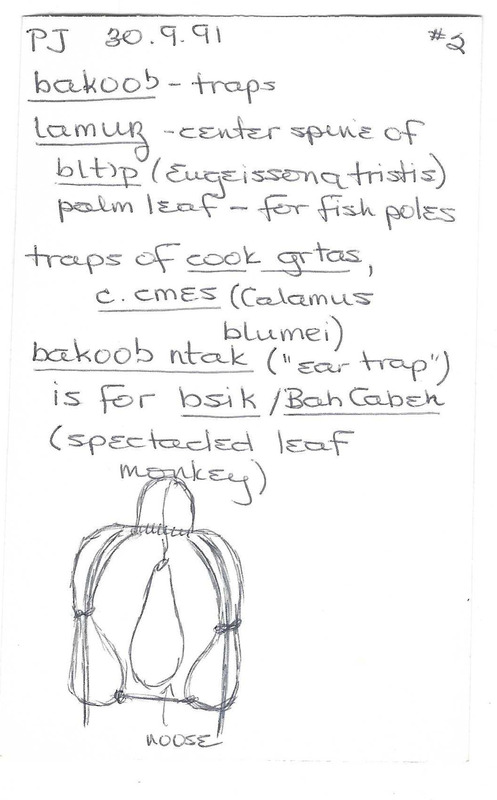 PJ 30.9.91 #2
bakoob - traps
- center spine of
(Eugeissona tristis)
palm leaf - for fish poles
traps of cook grtas,
c. cmɛs (Calamus
blumei)
bakoob ntak ("ear trap")
is for bsik / Bah Cabeh
(spectacled leaf
monkey)
NOOSE